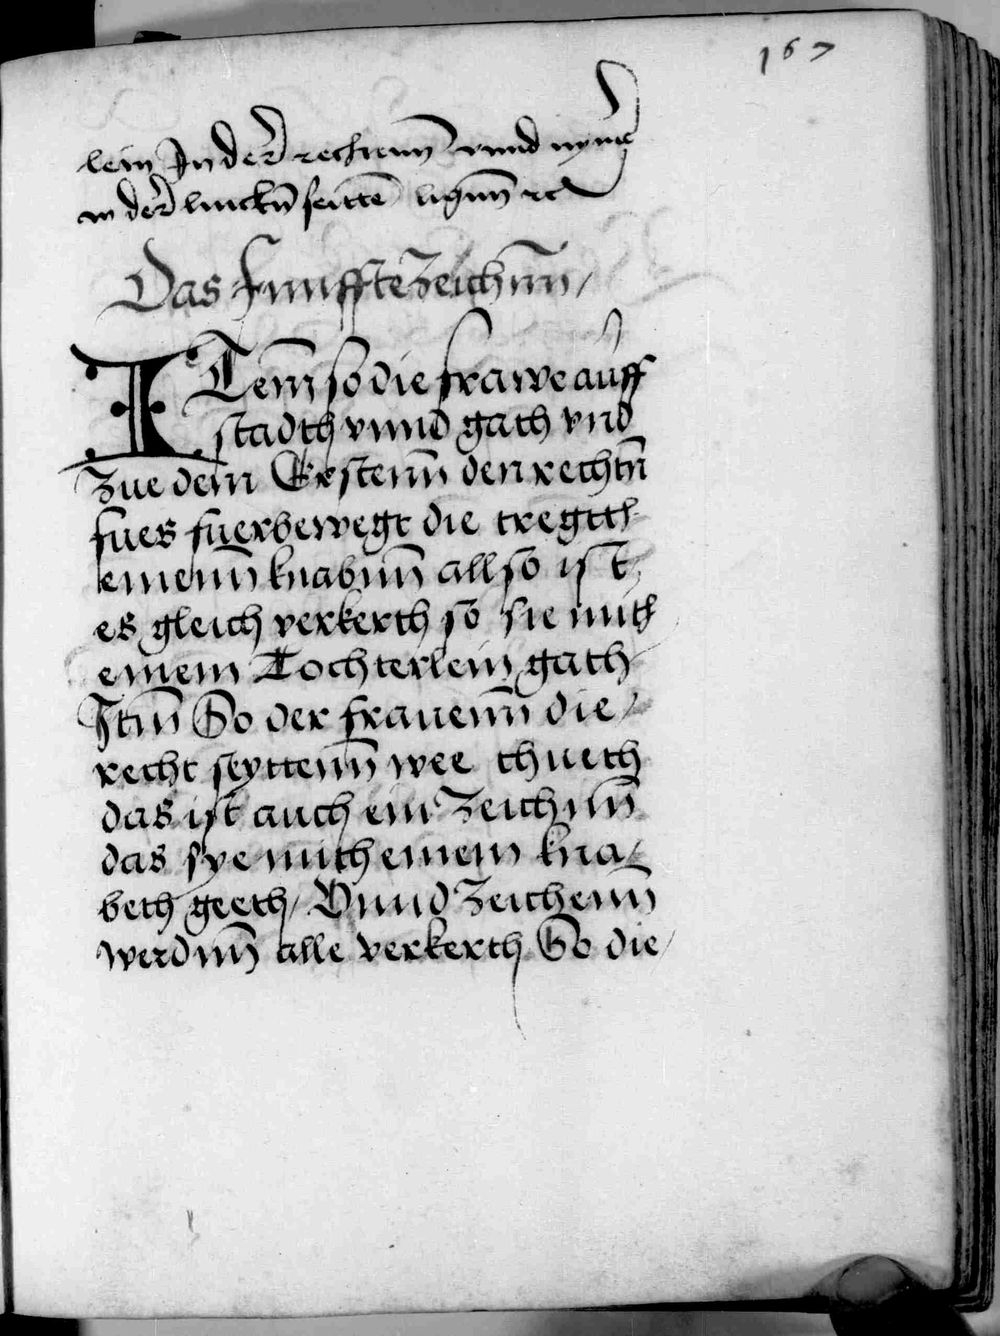 167
lein In der rechenn vnnd nymer
in der linckn̄ seittē lignn̄ ꝛc
Das Funffte Zeichnn̄ /
ITem̄ so die frawe auff
stadth vnnd gath vnd
Zue dem Erstenn̄ den rechtn̄
fues fuerbewegt die tregtth
einenn̄ knabnn̄ allso ist
es gleich verkerth so sie mith
einem Tochterlein gath
Itm̄ So der frauenn̄ die /
recht seyttenn̄ wee thueth
das ist auch ein Zeichnn̄
das sye mith einem kna/
beth geeth / Vnnd Zeichenn̄
werdnn̄ alle verkerth So die /